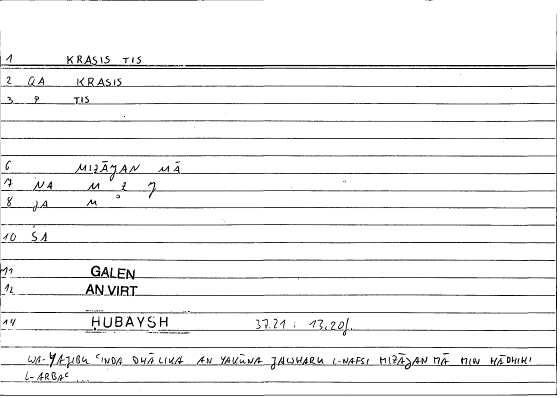 1 KRASIS TIS
2 QA KRASIS
3 P TIS
6 MIZĀǦAN MĀ
7 NA M Z Ǧ
8 JA M
10 SA
11 GALEN
12 AN VIRT
14 ḤUBAYSH 37.21 : 13,20f.
WA-YAJIBU ʿINDA DHĀLIKA AN YAKŪNA JAWHARU L-NAFSI MIZĀJAN MĀ MIN HĀDHIHI
L-ARBAʿ ...